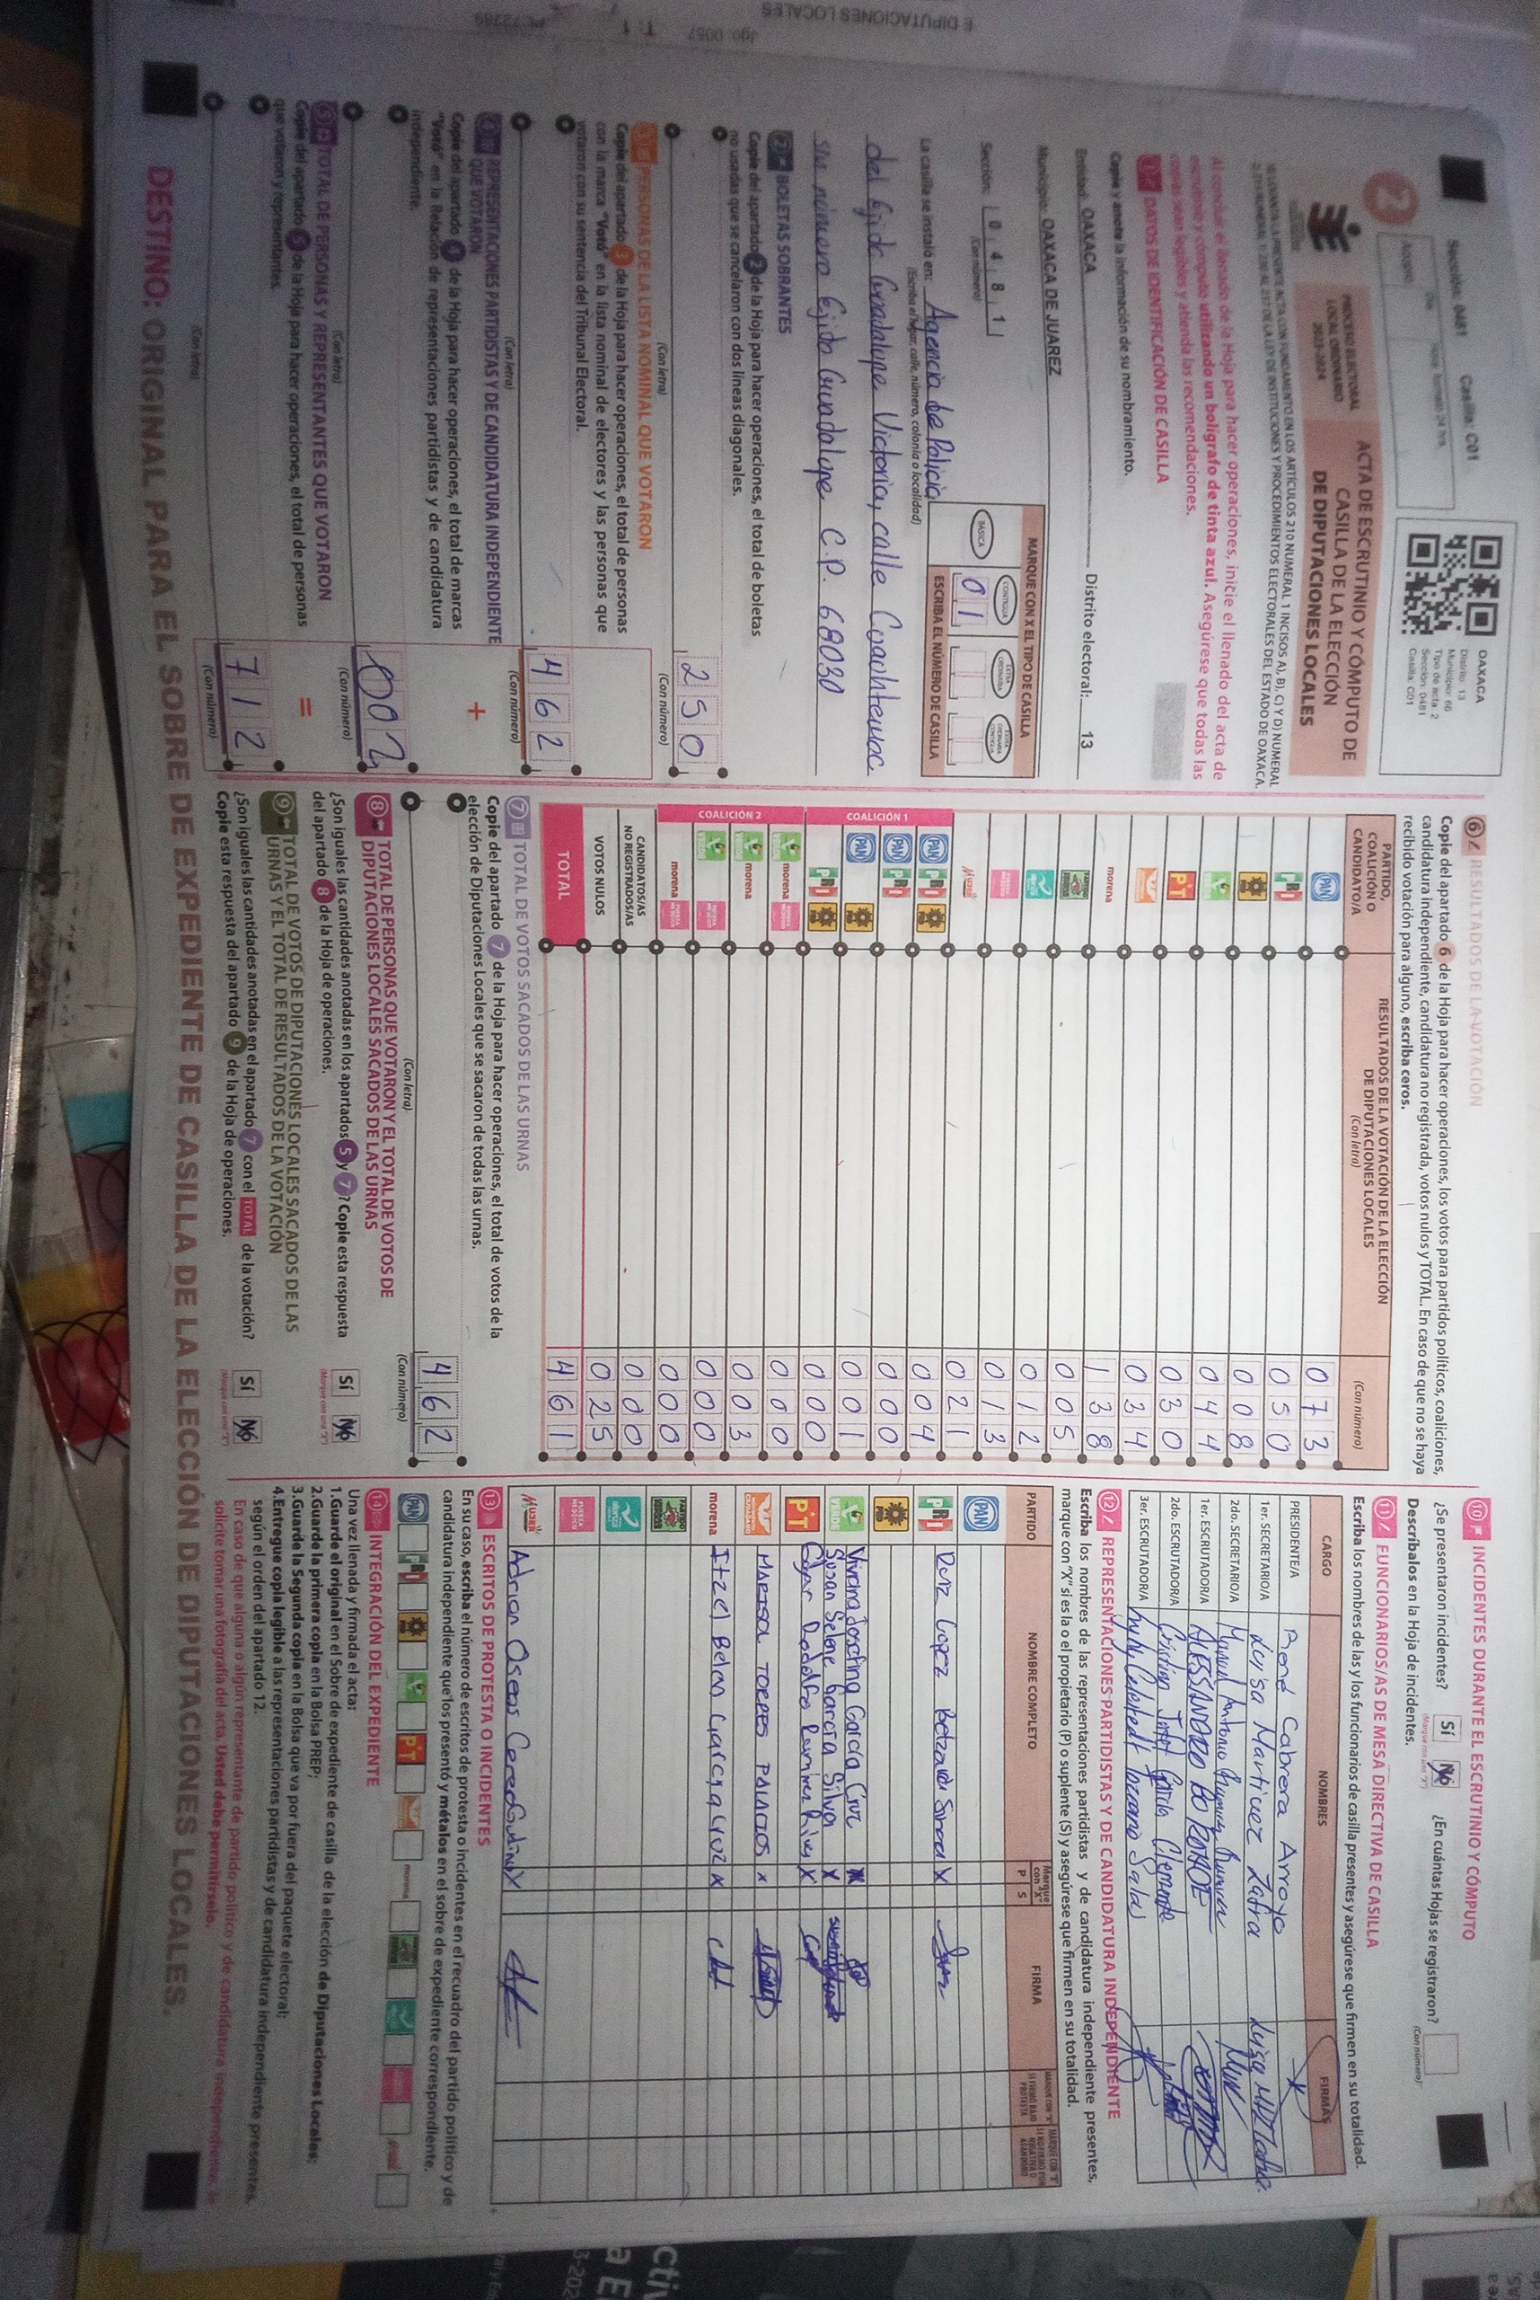 Sección: 0481 Casilla: C01
OAXACA
Distrito: 13
Municipio: 66
Tipo de acta: 2
Sección: 0481
Casilla: C01
2
PROCESO ELECTORAL
LOCAL ORDINARIO
2023-2024
ACTA DE ESCRUTINIO Y CÓMPUTO DE
CASILLA DE LA ELECCIÓN
DE DIPUTACIONES LOCALES
Al concluir el llenado de la Hoja para hacer operaciones, inicie el llenado del acta de
escrutinio y cómputo utilizando un bolígrafo de tinta azul. Asegúrese que todas las
copias sean legibles y atienda las recomendaciones.
1 DATOS DE IDENTIFICACIÓN DE CASILLA
Copie y anote la información de su nombramiento.
Entidad: OAXACA Distrito electoral: 13
Municipio: OAXACA DE JUAREZ
Sección: 0481
(Con número)
MARQUE CON X EL TIPO DE CASILLA
BÁSICA CONTIGUA
01
ESCRIBA EL NÚMERO DE CASILLA
La casilla se instaló en: Agencia de Policía
(Escriba el lugar, calle, número, colonia o localidad)
del Ejido Guadalupe Victoria, calle Cuauhtemoc
sin número Ejido Guadalupe C.P. 68030
2 BOLETAS SOBRANTES
Copie del apartado 2 de la Hoja para hacer operaciones, el total de boletas
no usadas que se cancelaron con dos líneas diagonales.
250
(Con letra) (Con número)
3 PERSONAS DE LA LISTA NOMINAL QUE VOTARON
Copie del apartado 3 de la Hoja para hacer operaciones, el total de personas
con la marca "Votó" en la lista nominal de electores y las personas que
votaron con su sentencia del Tribunal Electoral.
462
(Con letra) (Con número)
4 REPRESENTACIONES PARTIDISTAS Y DE CANDIDATURA INDEPENDIENTE
QUE VOTARON
+
Copie del apartado 4 de la Hoja para hacer operaciones, el total de marcas
"Votó" en la Relación de representaciones partidistas y de candidatura
independiente.
002
(Con letra) (Con número)
5 TOTAL DE PERSONAS Y REPRESENTANTES QUE VOTARON
=
Copie del apartado 5 de la Hoja para hacer operaciones, el total de personas
que votaron y representantes.
712
(Con letra) (Con número)
6 RESULTADOS DE LA VOTACIÓN
Copie del apartado 6 de la Hoja para hacer operaciones, los votos para partidos políticos, coaliciones,
candidatura independiente, candidatura no registrada, votos nulos y TOTAL. En caso de que no se haya
recibido votación para alguno, escriba ceros.
PARTIDO,
COALICIÓN O
CANDIDATO/A
RESULTADOS DE LA VOTACIÓN DE LA ELECCIÓN
DE DIPUTACIONES LOCALES
(Con letra) (Con número)
PAN 073
PRI 050
008
VERDE 044
PT 030
034
morena 138
005
012
013
MUJER 021
COALICIÓN 1
PAN PRI 004
PAN PRI 000
PAN 001
PRI 000
COALICIÓN 2
morena 000
morena 003
000
morena 000
CANDIDATOS/AS
NO REGISTRADOS/AS 000
VOTOS NULOS 025
TOTAL 461
7 TOTAL DE VOTOS SACADOS DE LAS URNAS
Copie del apartado 7 de la Hoja para hacer operaciones, el total de votos de la
elección de Diputaciones Locales que se sacaron de todas las urnas.
462
(Con letra) (Con número)
8 TOTAL DE PERSONAS QUE VOTARON Y EL TOTAL DE VOTOS DE
DIPUTACIONES LOCALES SACADOS DE LAS URNAS
¿Son iguales las cantidades anotadas en los apartados 5 y 7? Copie esta respuesta
del apartado 8 de la Hoja de operaciones.
SÍ NO
9 TOTAL DE VOTOS DE DIPUTACIONES LOCALES SACADOS DE LAS
URNAS Y EL TOTAL DE RESULTADOS DE LA VOTACIÓN
¿Son iguales las cantidades anotadas en el apartado 7 con el TOTAL de la votación?
Copie esta respuesta del apartado 9 de la Hoja de operaciones.
SÍ NO
10 INCIDENTES DURANTE EL ESCRUTINIO Y CÓMPUTO
¿Se presentaron incidentes? SÍ NO ¿En cuántas Hojas se registraron?
(Con número)
Descríbalos en la Hoja de incidentes.
11 FUNCIONARIOS/AS DE MESA DIRECTIVA DE CASILLA
Escriba los nombres de las y los funcionarios de casilla presentes y asegúrese que firmen en su totalidad.
CARGO NOMBRES FIRMAS
PRESIDENTE/A René Cabrera Arroyo
1er. SECRETARIO/A Luisa Martinez Zafra
2do. SECRETARIO/A Manuel Antonio
1er. ESCRUTADOR/A ALESSANDRO
2do. ESCRUTADOR/A Cristian Clemente
3er. ESCRUTADOR/A
12 REPRESENTACIONES PARTIDISTAS Y DE CANDIDATURA INDEPENDIENTE
Escriba los nombres de las representaciones partidistas y de candidatura independiente presentes,
marque con "X" si es la o el propietario (P) o suplente (S) y asegúrese que firmen en su totalidad.
PARTIDO NOMBRE COMPLETO Marque con "X" P S FIRMA
PAN
PRI Ruiz Lopez X
VERDE Josefina García Cruz X
Susan Selene García Silva X
PT Rodolfo Ramirez X
MARISOL TORRES PALACIOS X
morena Itzel Belen Garcia Cruz X
MUJER Adrian Oseas X
13 ESCRITOS DE PROTESTA O INCIDENTES
En su caso, escriba el número de escritos de protesta o incidentes en el recuadro del partido político y de
candidatura independiente que los presentó y métalos en el sobre de expediente correspondiente.
PAN PRI VERDE PT morena
14 INTEGRACIÓN DEL EXPEDIENTE
Una vez llenada y firmada el acta:
1.Guarde el original en el Sobre de expediente de casilla de la elección de Diputaciones Locales;
2.Guarde la primera copia en la Bolsa PREP;
3.Guarde la Segunda copia en la Bolsa que va por fuera del paquete electoral;
4.Entregue copia legible a las representaciones partidistas y de candidatura independiente presentes,
según el orden del apartado 12.
En caso de que alguna o algún representante de partido político y de candidatura independiente, le
solicite tomar una fotografía del acta. Usted debe permitírselo.
DESTINO: ORIGINAL PARA EL SOBRE DE EXPEDIENTE DE CASILLA DE LA ELECCIÓN DE DIPUTACIONES LOCALES.
E DIPUTACIONES LOCALES